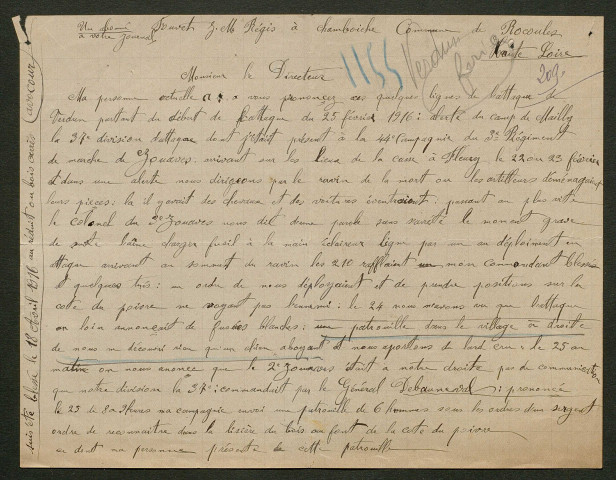 Un abonné
à votre journal
Jouvet J. M Régis à chamboiche Commune de Rocoules
Haute Loire
1155
Verdun
209
Monsieur le Directeur
Ma personne actuelle a vous prononcez ces quelques lignes de l'attaque de
Verdun partant du début de l'attaque du 25 février 1916: alerte du camp de Mailly
la 37e division d'attaque dont j'était présent à la 44e Compagnie du 3e Régiment
de marche de Zouaves arrivant sur les lieux de la casse à Fleury le 22 ou 23 février
et dans une alerte nous dirigeons par le ravin de la mort ou les artilleurs déménageaint
leurs pièces: la il y avait des chevaux et des voitures éventraient: passant au plus vite
le Colonel du 3e Zouaves nous dit d'une parole sans sureté le moment grave
de suite baïne charger fusil à la main éclaireur ligne par un en déploiement en
attaque arrivant au sommet du ravin les 210 raffllaint mon Commandant blessé
et quelques tués: un ordre de nous déployaient et de prendre positions sur la
cote du poivre ne voyant pas l'ennemi: le 24 nous avons vu que l'attaque
au loin s'anonçait de fumées blanches: une patrouille dans le village à droite
de nous ne découvri rien qu'un chien aboyant et nous aportons du lard cru: le 25 au
matin on nous anonce que le 2e Zouaves était à notre droite pas de communication
que notre division la 37e: commanduit par le Général Debonneval: prononcée
le 25 de 8 a 9 heurs ma compagnie envoi une patrouille de 6 hommes sous les ordres d'un sergent
ordre de reconnaitre dans la lisière du bois au front de la cote du poivre
ce dont ma personne présente de cette patrouille
suis été blessé le 18 Avril 1916 au réduit ou bois carré (avocour)